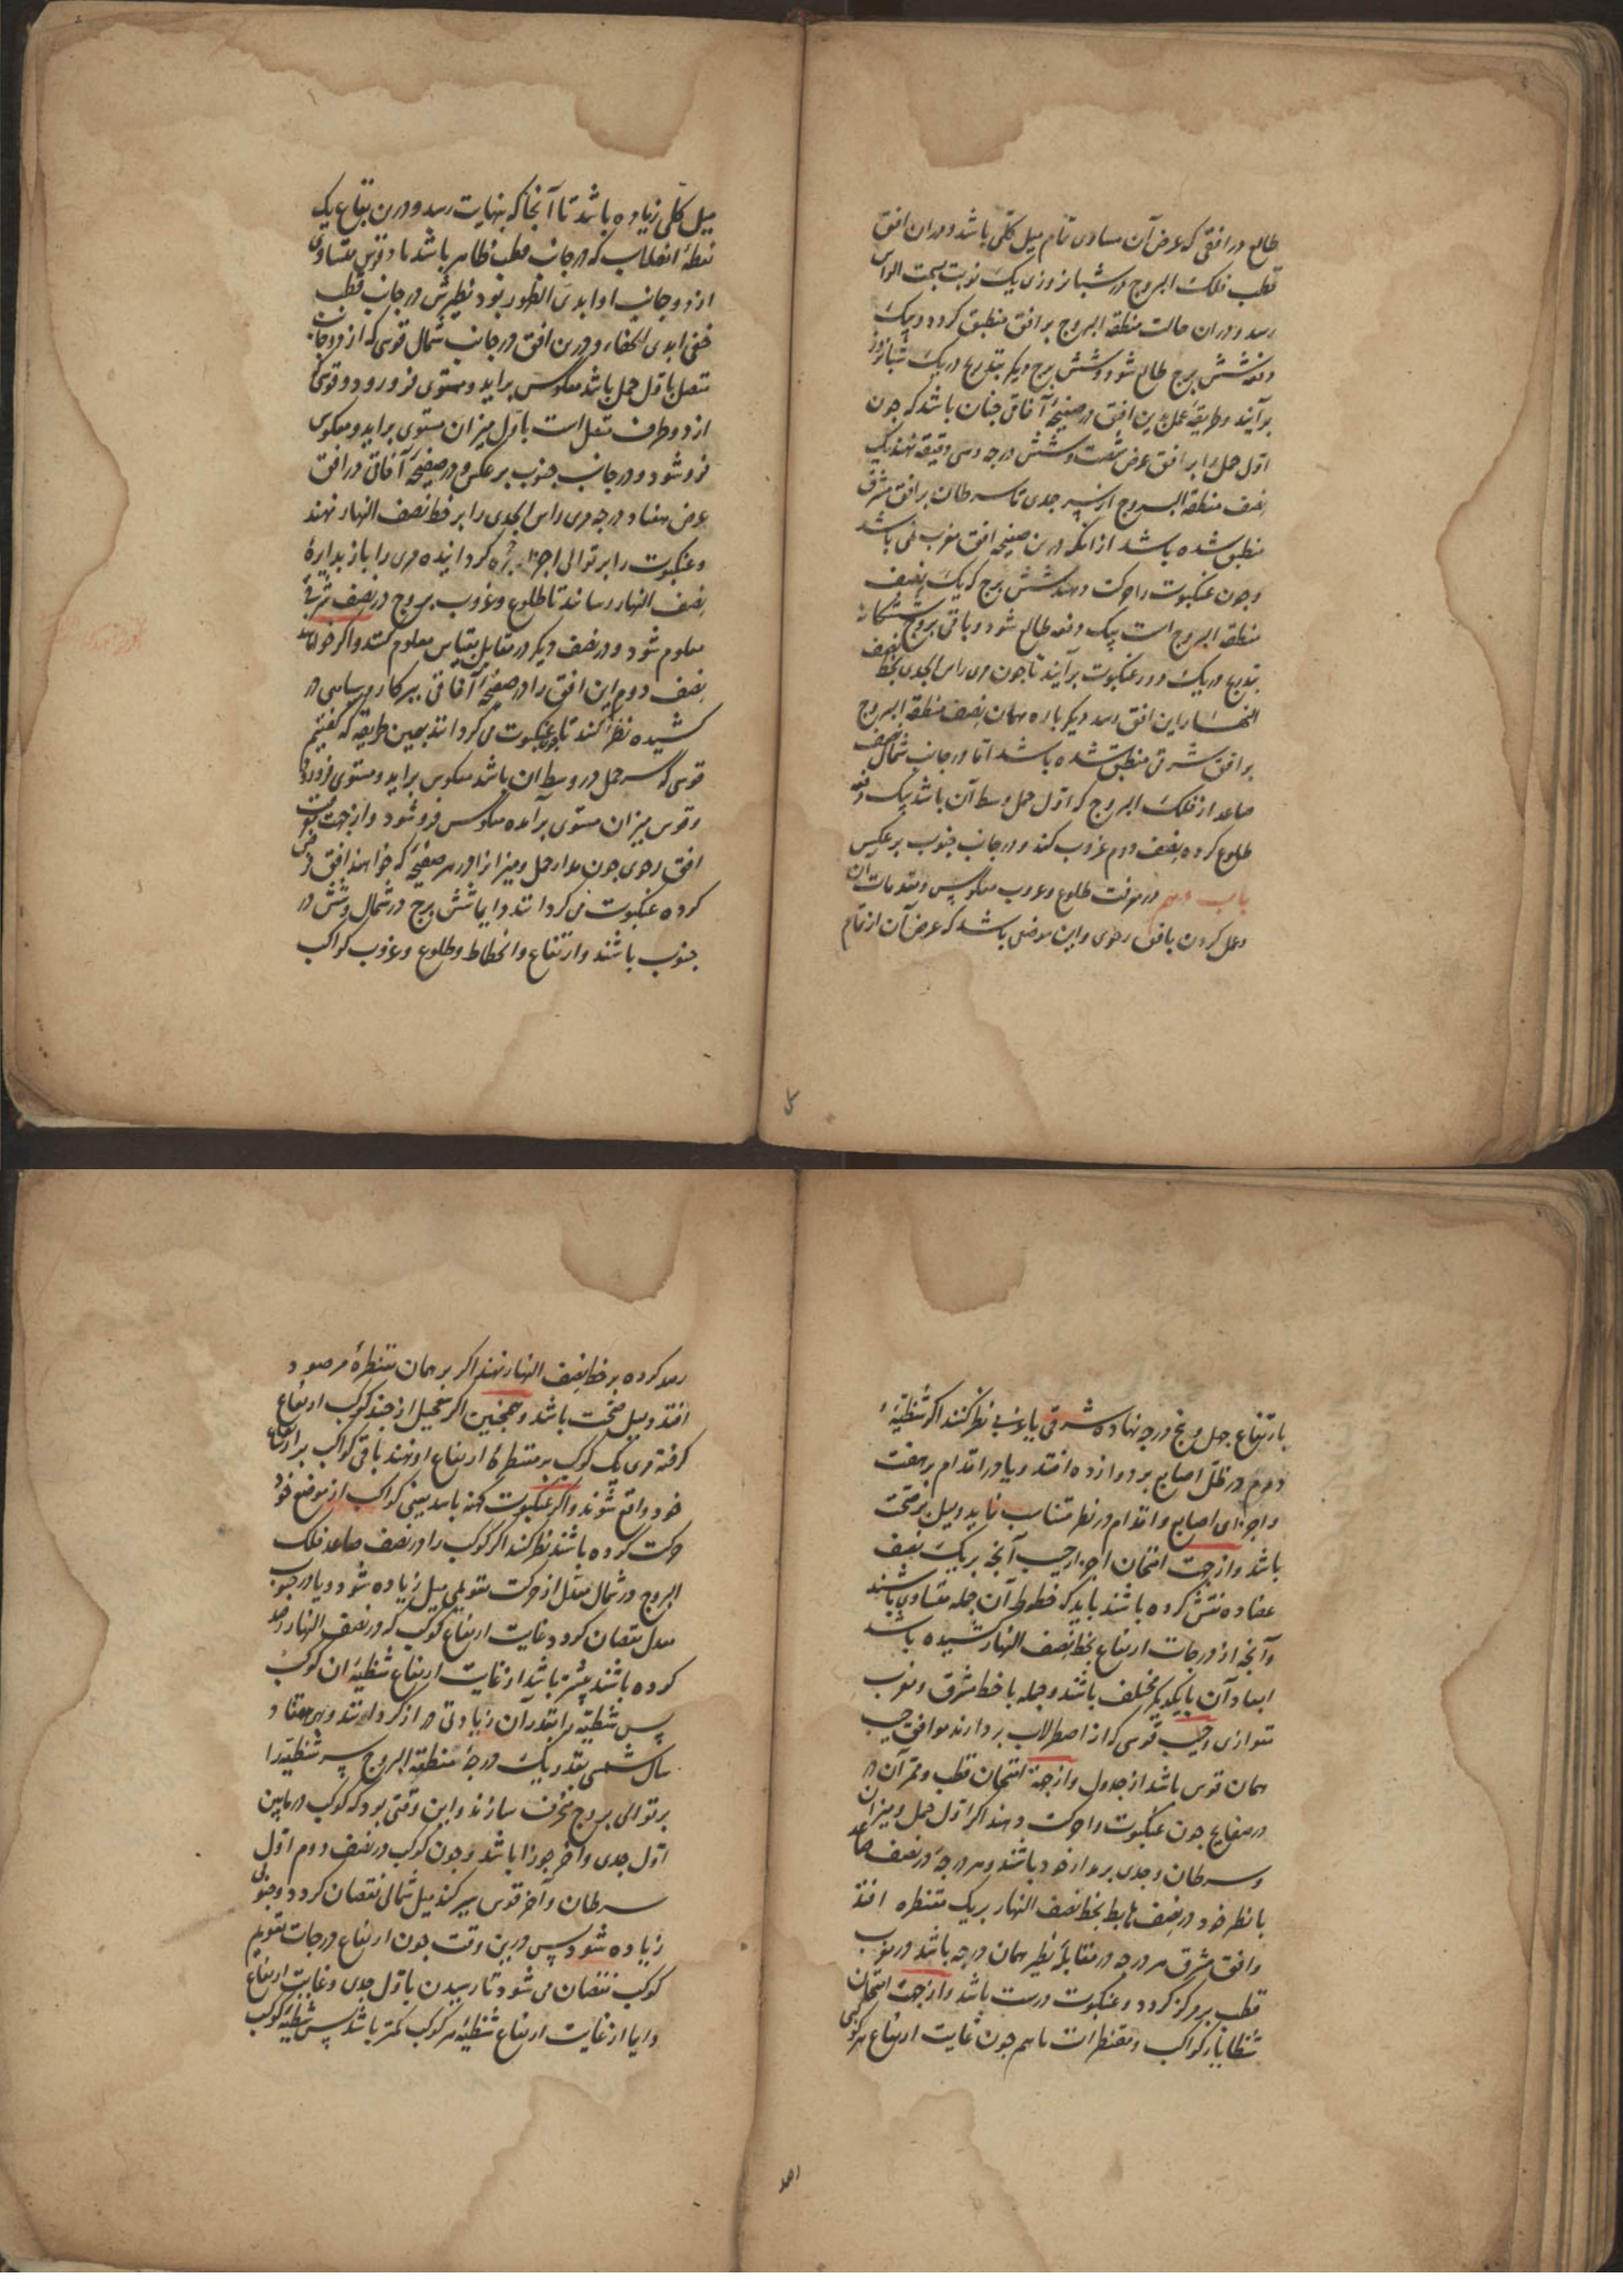 طالع در افقی که عرض آن مساوی تمام میل کلّی باشد و در ان افق
قطب فلک البروج در شبانروزی یک نوبت بسمت الراس
رسد و در ان حالت منطقه البروج بر افق منطبق کردد و بیک
دفعه شش برج طالع شود و شش برج دیکر بتدریج در یک شبانروز
برآیند و طریقهٔ عمل بدین افق در صفیحهٔ آفاقی جنان باشد که جون
اوّل حمل را بر افق عرض شصت و شش درجه و سی دقیقه نهند یک
نصف منطقه البروج از سر جدی تا سرطان بر افق مشرق
منطبق شده باشد از انکه درین صفیحه افق مغرب نمی باشد
وجون عنکبوت را حرکت دهند شش برج که یک نصف
منطقه البروج است بیک دفعه طالع شود و باقی بروج ششکانه
بتدریج در یک دور عنکبوت برآیند تا جون مری راس الجدی بخط نصف
النهار این افق رسد دیکر باره همان نصف منطقه البروج
بر افق شرقی منطبق شده باشد اما در جانب شمال نصف
صاعد از فلک البروج که اوّل حمل وسط آن باشد بیک دفعه
طلوع کرده نصف دوم غروب کند و در جانب جنوب بر عکس
باب دهم در معرفت طلوع و غروب معکوس و مقدمات ان
و عمل کردن بافق رحوی و این موضعی باشد که عرض آن از تمام
میل کلّی زیاده باشد تا آنجا که بنهایت رسد و درین بقاع یک
نقطهٔ انقلاب که در جانب قطب ظاهر باشد با دو قوس متساوی
از دو جانب او ابدیّ الظهور بود نظیرش در جانب قطب
خفی ابدی الخفاء و درین افق در جانب شمال قوسی که از دو جانب
متصل باوّل حمل باشد معکوس برآید و مستوی فرو رود و قوسی که
از دو طرف متصل است باوّل میزان مستوی برآید و معکوس
فرو شود و در جانب جنوب بر عکس و در صفیحهٔ آفاقی در افق
عرض هفتاد درجه مری راس الجدی را بر خط نصف النهار نهند
و عنکبوت را بر توالی اجزاء حجره کردانیده مری را باز بدایرهٔ
نصف النهار رسانند تا طلوع و غروب بروج در نصف شرقی
معلوم شود و در نصف دیکر در مقابل بقیاس معلوم کنند و اکر خواهند
نصف دوم این افق را در صفیحهٔ آفاقی ببرکار و سیاهی در
کشیده نظر کنند تا جون عنکبوت می کردانند بهمین طریقه که کفتیم
قوسی که سر حمل در وسط ان باشد معکوس برآید و مستوی فرو رود
و قوس میزان مستوی برآمده معکوس فرو شود و از جهت
افق رحوی جون مدار حمل و میزان را در هر صفیحه که خواهند افق فرض
کرده عنکبوت می کردانند دایما شش برج در شمال و شش در
جنوب باشند و ارتفاع و انحطاط و طلوع و غروب کواکب
بارتفاع جهل و بنج درجه نهاده شرقی یا غربی نظر کنند اکر شظیّهٔ
دوم در ظل اصابع بر دوازده افتد و یا در اقدام بر هفت
و اجزای اصابع و اقدام در نظر متناسب نماید دلیل بر صحّت
باشد و از جهت امتحان اجزا جیب آنجه بر یک نصف
عضاده نقش کرده باشند باید که خطوط آن جمله متساوی باشند
و آنجه از درجات ارتفاع بخط نصف النهار کشیده باشند
ابعاد آن بایکدیکر مختلف باشند و جمله با خط مشرق و مغرب
متوازی و جیب قوسی که از اصطرلاب بردارند موافق جیب
همان قوس باشد از جدول و از جهة امتحان قطب و ممر آن در
در صفایح جون عنکبوت را حرکت دهند اکر اوّل حمل و میزان
و سرطان و جدی بر مدار خود باشند و هر درجه در نصف صاعد
با نظیر خود در نصف هابط بخط نصف النهار بر یک مقنطره افتد
و افق مشرق هر درجه در مقابلهٔ نظیر همان درجه باشد در مغرب
قطب بر مرکز کردد و عنکبوت درست باشد و از جهت امتحان
شظایای کواکب و مقنطرات باهم جون غایت ارتفاع هر کوکبی
رصد کرده بر خط نصف النهار نهند اکر بر همان مقنطرهٔ مرصود
افتد دلیل صحّت باشد و همجنین اکر تعجیل از جند کوکب ارتفاع
کرفته مری یک کوکب بر مقنطرهٔ ارتفاع او نهند باقی کواکب بر ارتفاع
خود واقع شوند و اکر عنکبوت کهنه باشد یعنی کواکب از موضع خود
حرکت کرده باشند نظر کنند اکر کوکب را در نصف صاعد فلک
البروج در شمال معدل از حرکت تقویمی میل زیاده شود و یا در جنوب
معدل نقصان کردد غایت ارتفاع کوکب که در نصف النهار رصد
کرده باشند بیشتر باشد از غایت ارتفاع شظیهٔ ان کوکب
پس شظیّه را بقدر آن زیادتی دراز کردانند و بهر هفتاد
سال شمسی بقدر یک درجهٔ منطقه البروج سر شظیّه را
بر توالی بروج منحرف سازند و این وقتی بود که کوکب در مابین
اوّل جدی و آخر جوزا باشد و جون کوکب در نصف دوم اوّل
سرطان و آخر قوس سیر کند میل شمالی نقصان کردد و جنوبی
زیاده شود پس درین وقت جون ارتفاع درجات تقویم
کوکب نقصان می شود تا رسیدن باوّل جدی و غایت ارتفاع
دایما از غایت ارتفاع شظیهٔ هر کوکب کمتر باشد پس شظیهٔ کوکب